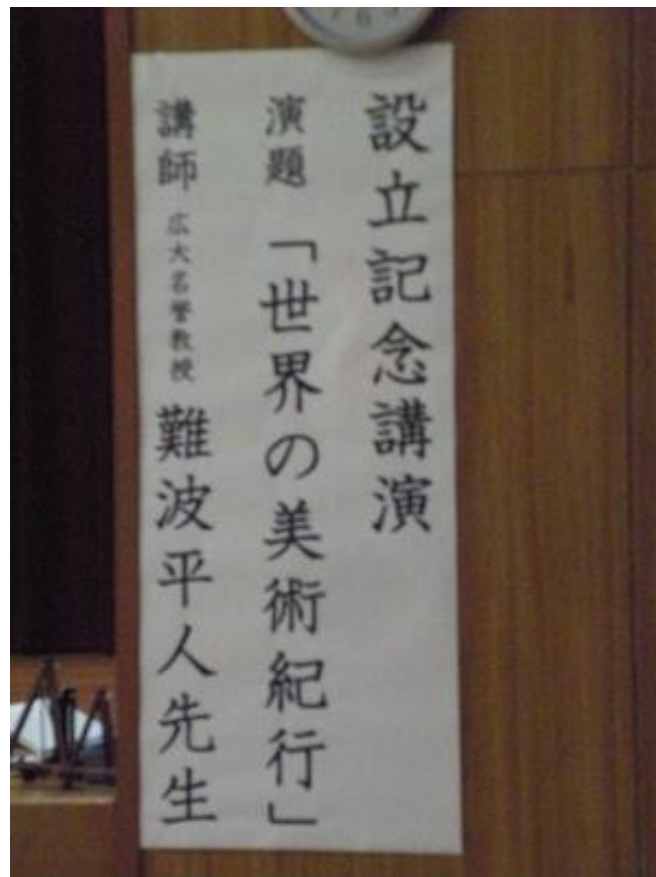 設立記念講演
演題 「世界の美術紀行」
講師 広大名誉教授 難波平人先生